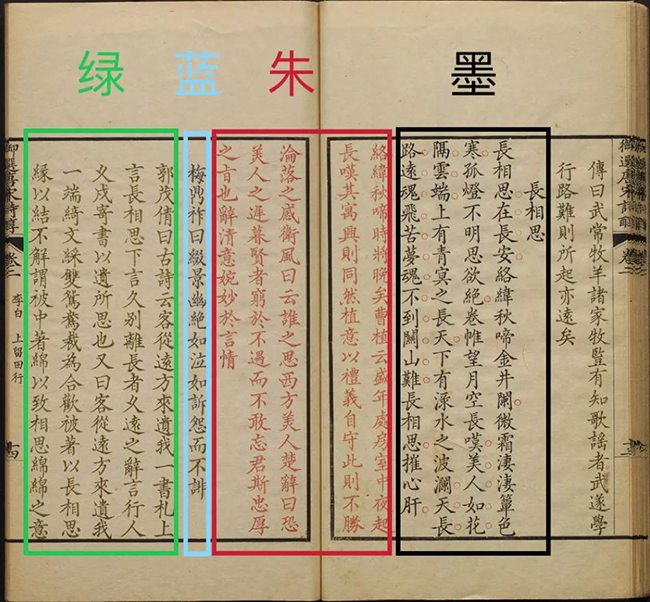 绿 蓝 朱 墨
傳曰武常牧羊諸家牧監有知歌謠者武遂學
行路難則所起亦遠矣
長相思
長相思在長安絡緯秋啼金井闌微霜淒淒簟色
寒孤燈不明思欲絶卷帷望月空長嘆美人如花
隔雲端上有青冥之長天下有淥水之波瀾天長
路遠魂飛苦夢魂不到關山難長相思摧心肝
絡緯秋啼時將晩矣曹植云盛年處房室中夜起
長嘆其寓興則同然植意以禮義自守此則不勝
淪落之感衛風曰云誰之思西方美人楚辭曰恐
美人之遲暮賢者窮於不遇而不敢忘君斯忠厚
之旨也辭清意婉妙於言情
梅鼎祚曰綴景幽絶如泣如訴怨而不誹
郭茂倩曰古詩云客從遠方來遺我一書札上
言長相思下言久别離長者乆遠之辭言行人
乆戍寄書以遺所思也又曰客從遠方來遺我
一端綺文綵雙鴛鴦裁為合歡被著以長相思
縁以結不解謂被中著綿以致相思綿綿之意
御選唐宋詩醇 卷之二 李白 上留田行 十四